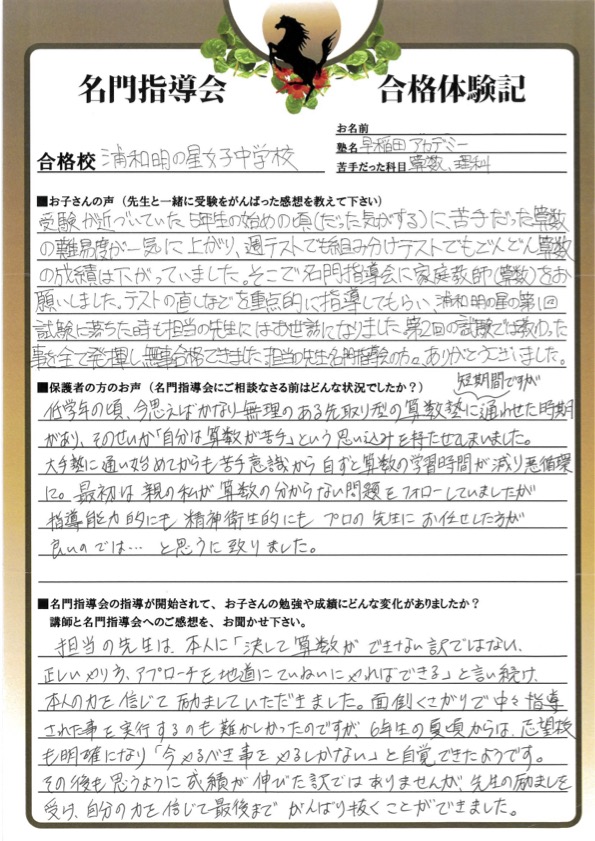 名門指導会 合格体験記
お名前
合格校 浦和明の星女子中学校
塾名 早稲田アカデミー
苦手だった科目 算数、理科
■お子さんの声（先生と一緒に受験をがんばった感想を教えて下さい）
受験が近づいていた、5年生の始めの頃(だった気がする)に、苦手だった算数
の難易度が一気に上がり、週テストでも組み分けテストでもどんどん算数
の成績は下がっていました。そこで名門指導会に家庭教師(算数)をお
願いしました。テストの直しなどを重点的に指導してもらい、浦和明の星の第1回
試験に落ちた時も担当の先生にはお世話になりました。第2回の試験では教わった
事を全て発揮し、無事合格できました。担当の先生、名門指導会の方々、ありがとうございました。
■保護者の方のお声（名門指導会にご相談なさる前はどんな状況でしたか？）
短期間ですが
低学年の頃、今思えばかなり無理のある先取り型の算数塾に通わせた時期
があり、そのせいか「自分は算数が苦手」という思い込みを持たせてしまいました。
大手塾に通い始めてからも苦手意識から自ずと算数の学習時間が減り悪循環
に。最初は親の私が算数の分からない問題をフォローしていましたが
指導能力的にも精神衛生的にもプロの先生にお任せした方が
良いのでは… と思うに致りました。
■名門指導会の指導が開始されて、お子さんの勉強や成績にどんな変化がありましたか？
講師と名門指導会へのご感想を、お聞かせ下さい。
担当の先生は、本人に「決して算数ができない訳ではない、
正しいやり方、アプローチを地道にていねいにやればできる」と言い続け、
本人の力を信じて励ましていただきました。面倒くさがりで中々指導
された事を実行するのも難かしかったのですが、6年生の夏頃からは、志望校
も明確になり「今やるべき事をやるしかない」と自覚できたようです。
その後も思うように成績が伸びた訳ではありませんが、先生の励ましを
受け、自分の力を信じて最後までがんばり抜くことができました。